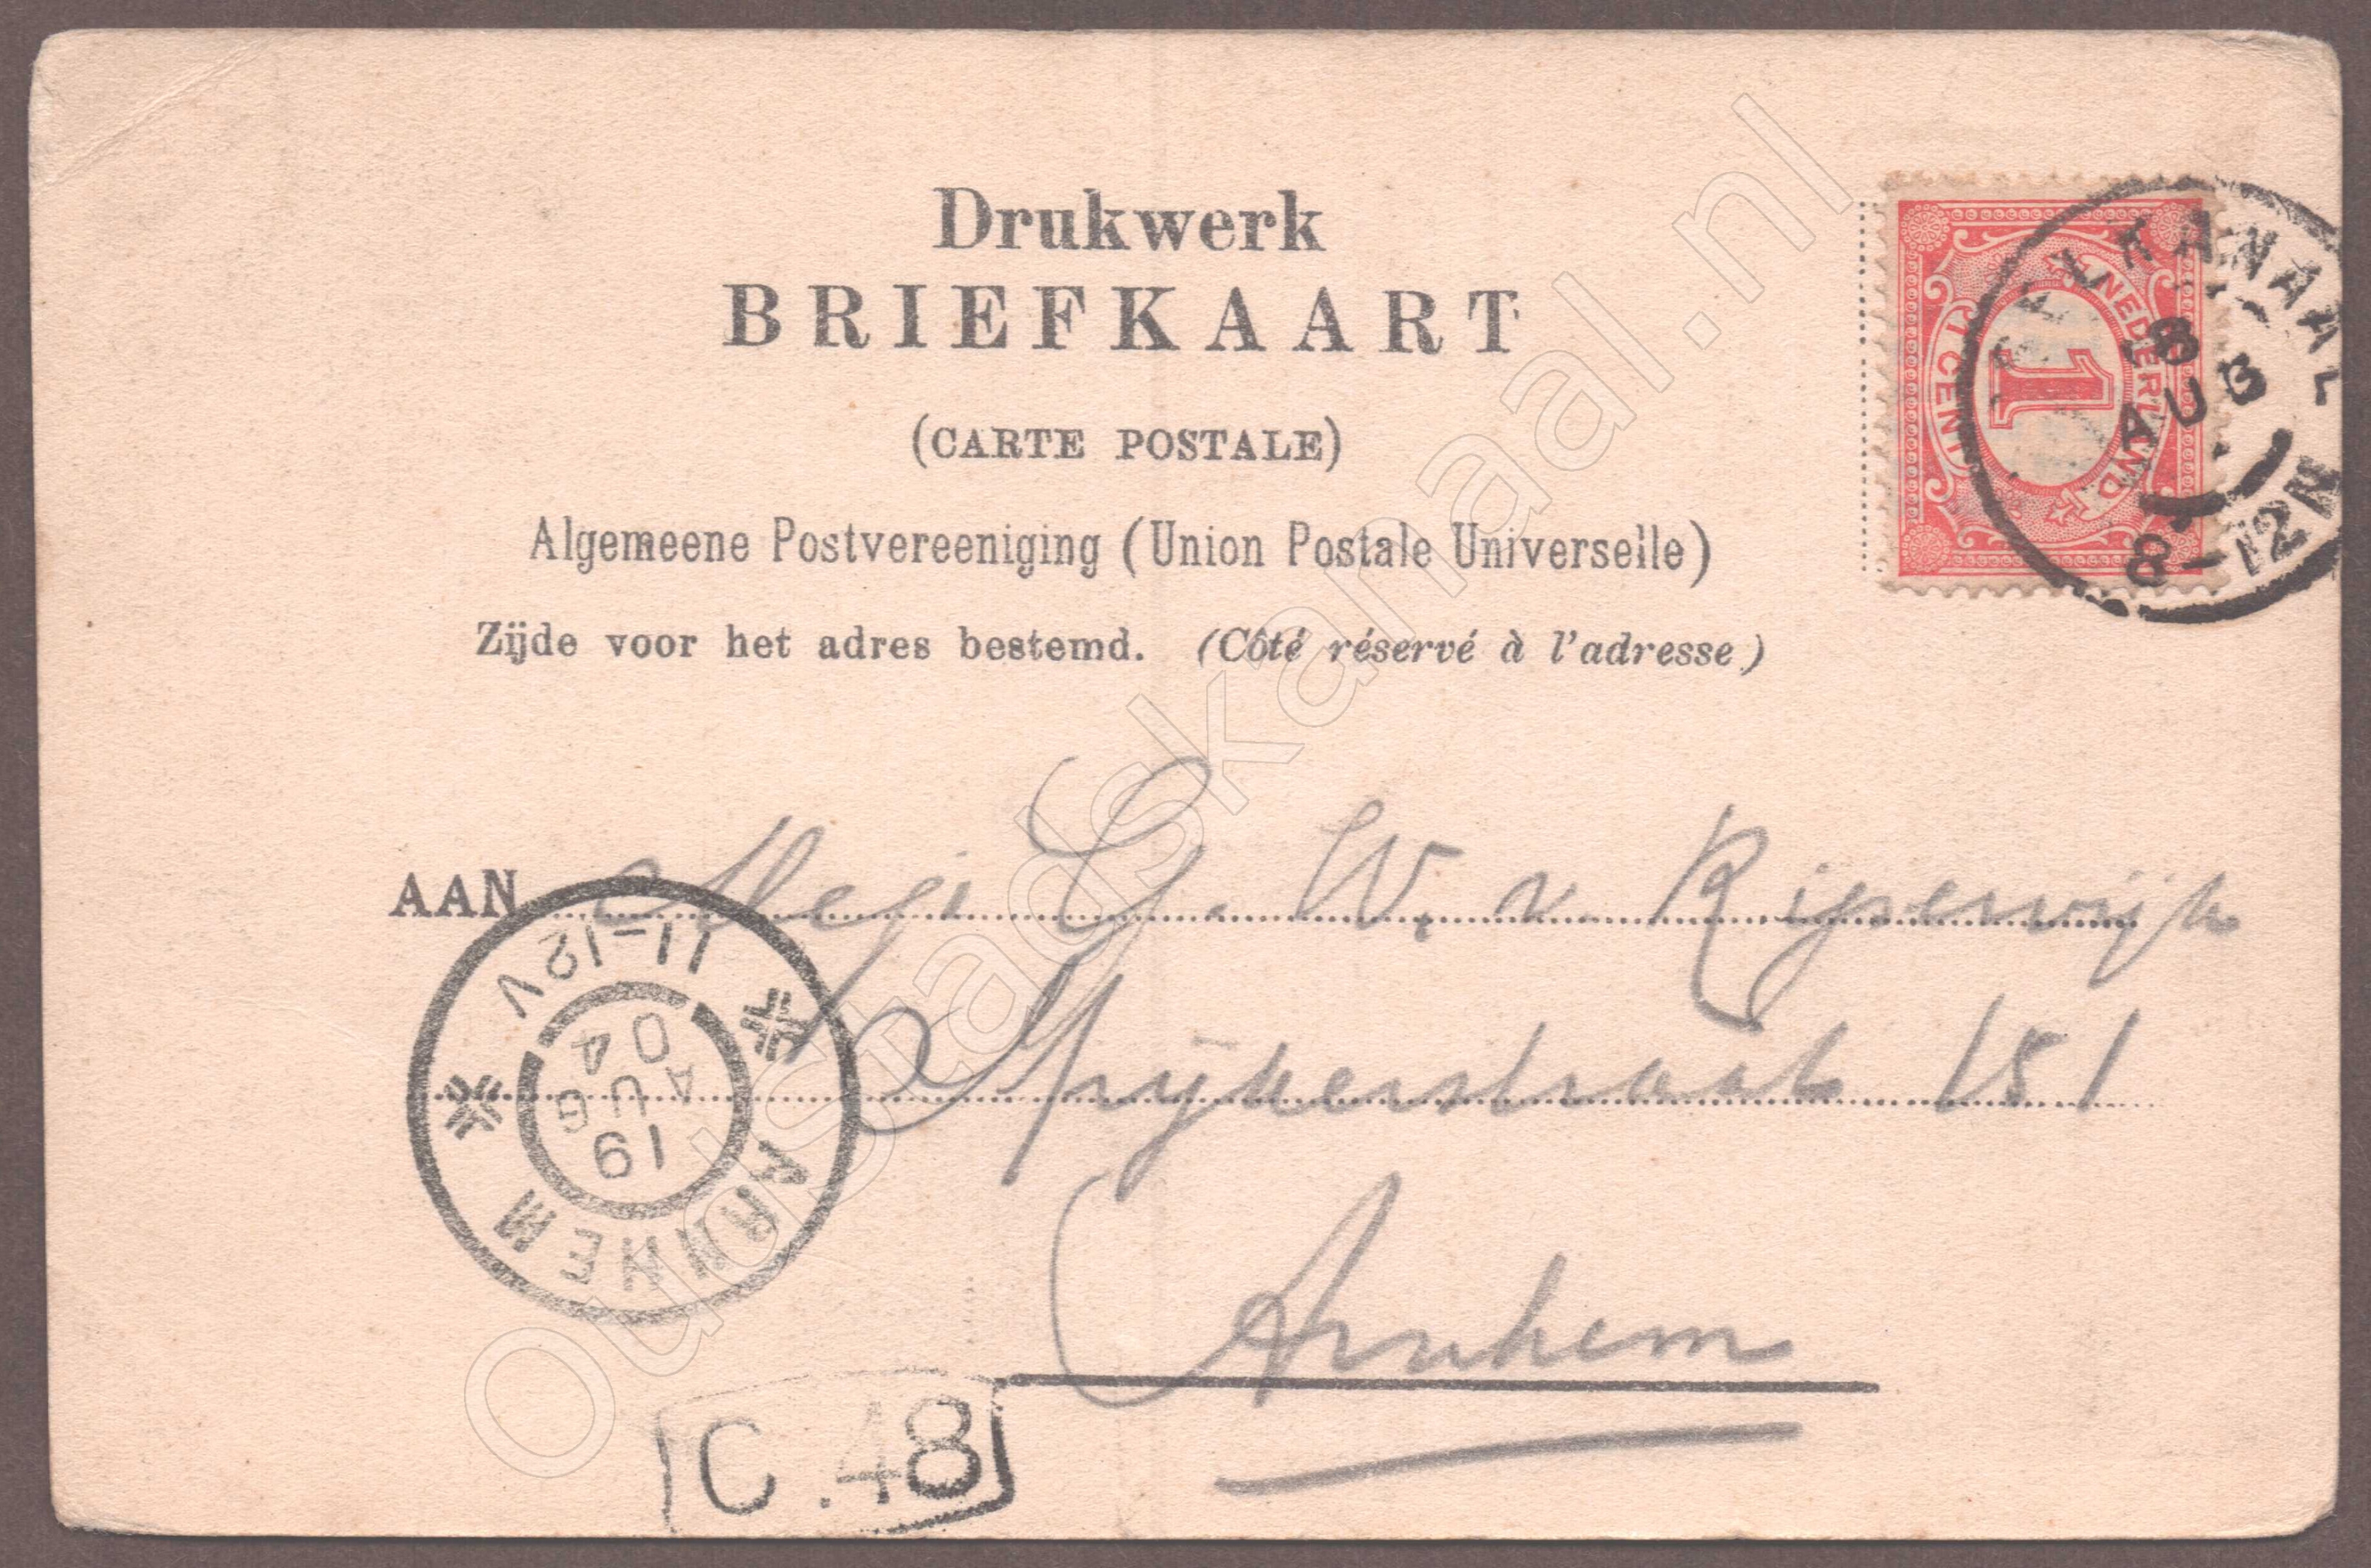 Drukwerk
BRIEFKAART
(CARTE POSTALE)
Algemeene Postvereeniging (Union Postale Universelle)
Zijde voor het adres bestemd. (Côté réservé à l'adresse)
NEDERLAND
1
1 CENT
KANAAL
8 AUG
8-12N
AAN Mej. G. W. v Rijserwijk
Spijkerstraat 151
Arnhem
11-12V
19
AUG
04
ARNHEM
C.48
Oudstadskanaal.nl